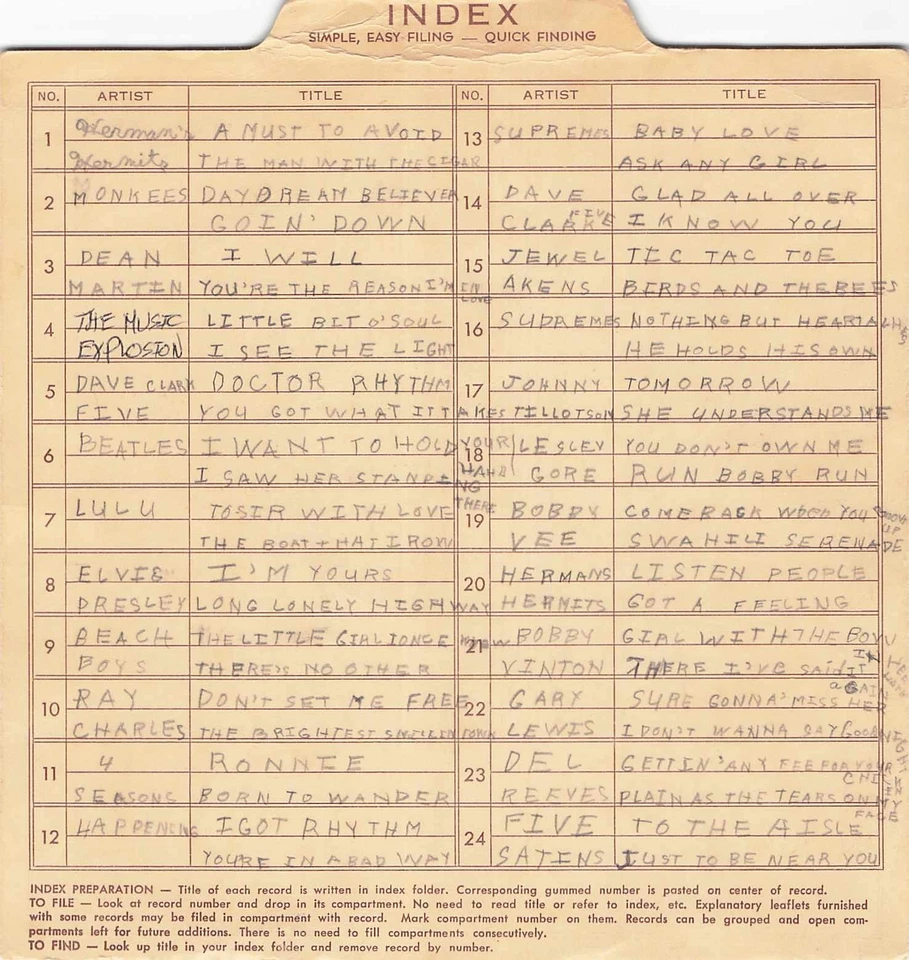 INDEX
SIMPLE, EASY FILING — QUICK FINDING
NO. ARTIST TITLE
1 Herman's A MUST TO AVOID
Hermits THE MAN WITH THE CIGAR
2 MONKEES DAYDREAM BELIEVER
GOIN' DOWN
3 DEAN I WILL
MARTIN YOU'RE THE REASON I'M IN LOVE
4 THE MUSIC LITTLE BIT O'SOUL
EXPLOSION I SEE THE LIGHT
5 DAVE CLARK DOCTOR RHYTHM
FIVE YOU GOT WHAT IT TAKES
6 BEATLES I WANT TO HOLD YOUR HAND
I SAW HER STANDING THERE
7 LULU TO SIR WITH LOVE
THE BOAT THAT I ROW
8 ELVIS I'M YOURS
PRESLEY LONG LONELY HIGHWAY
9 BEACH THE LITTLE GIRL I ONCE KNEW
BOYS THERE'S NO OTHER
10 RAY DON'T SET ME FREE
CHARLES THE BRIGHTEST IN TOWN
11 4 RONNIE
SEASONS BORN TO WANDER
12 HAPPENINGS I GOT RHYTHM
YOU'RE IN A BAD WAY
NO. ARTIST TITLE
13 SUPREMES BABY LOVE
ASK ANY GIRL
14 DAVE GLAD ALL OVER
CLARK FIVE I KNOW YOU
15 JEWEL TIC TAC TOE
AKENS BIRDS AND THE BEES
16 SUPREMES NOTHING BUT HEARTACHES
HE HOLDS HIS OWN
17 JOHNNY TOMORROW
TILLOTSON SHE UNDERSTANDS ME
18 LESLEY YOU DON'T OWN ME
GORE RUN BOBBY RUN
19 BOBBY COME BACK WHEN YOU GROW UP
VEE SWAHILI SERENADE
20 HERMANS LISTEN PEOPLE
HERMITS GOT A FEELING
21 BOBBY GIRL WITH THE BOW IN HER HAIR
VINTON THERE I'VE Said IT aGAIN
22 GARY SURE GONNA' MISS HER
LEWIS I DON'T WANNA SAY GOODNIGHT
23 DEL GETTIN' ANY FEE FOR YOUR CHICKEN
REEVES PLAIN AS THE TEARS ON MY FACE
24 FIVE TO THE AISLE
SATINS JUST TO BE NEAR YOU
INDEX PREPARATION — Title of each record is written in index folder. Corresponding gummed number is pasted on center of record.
TO FILE — Look at record number and drop in its compartment. No need to read title or refer to index, etc. Explanatory leaflets furnished
with some records may be filed in compartment with record. Mark compartment number on them. Records can be grouped and open com-
partments left for future additions. There is no need to fill compartments consecutively.
TO FIND — Look up title in your index folder and remove record by number.